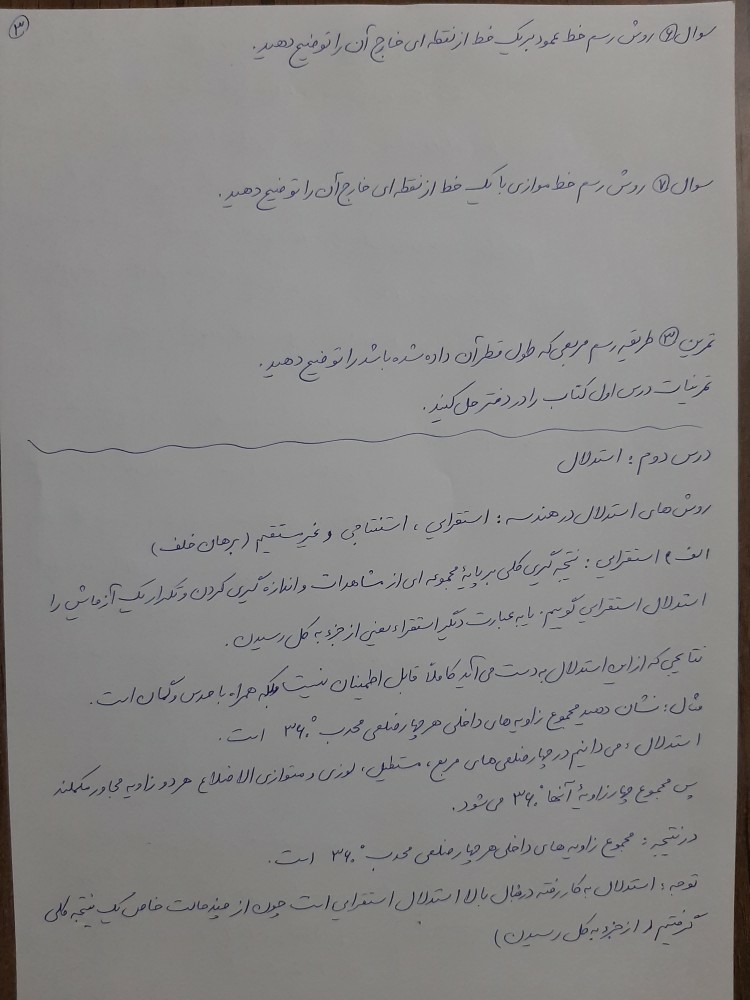 ۳
سوال ۶ روش رسم خط عمود بر یک خط از نقطه ای خارج آن را توضیح دهید.
سوال ۷ روش رسم خط موازی با یک خط از نقطه ای خارج آن را توضیح دهید.
تمرین ۳ طریقه رسم مربعی که طول قطر آن داده شده باشد را توضیح دهید.
تمرینات درس اول کتاب را در دفتر حل کنید.
درس دوم : استدلال
روش های استدلال در هندسه : استقرایی ، استنتاجی و غیر مستقیم (برهان خلف)
الف) استقرایی : نتیجه گیری کلی بر پایهٔ مجموعه ای از مشاهدات و اندازه گیری کردن و تکرار یک آزمایش را
استدلال استقرایی گوییم. یا به عبارت دیگر استقراء یعنی از جزء به کل رسیدن.
نتایجی که از این استدلال به دست می آید کاملاً قابل اطمینان نیست بلکه همراه با حدس و گمان است.
مثال : نشان دهید مجموع زاویه های داخلی هر چهارضلعی محدب ۳۶۰° است.
استدلال : می دانیم در چهارضلعی های مربع، مستطیل، لوزی و متوازی الاضلاع هر دو زاویه مجاور مکملند
پس مجموع چهار زاویهٔ آنها ۳۶۰° می شود.
در نتیجه : مجموع زاویه های داخلی هر چهارضلعی محدب ۳۶۰° است.
توجه : استدلال به کار رفته در مثال بالا استدلال استقرایی است چون از چند حالت خاص یک نتیجه کلی
گرفتیم ( از جزء به کل رسیدن)